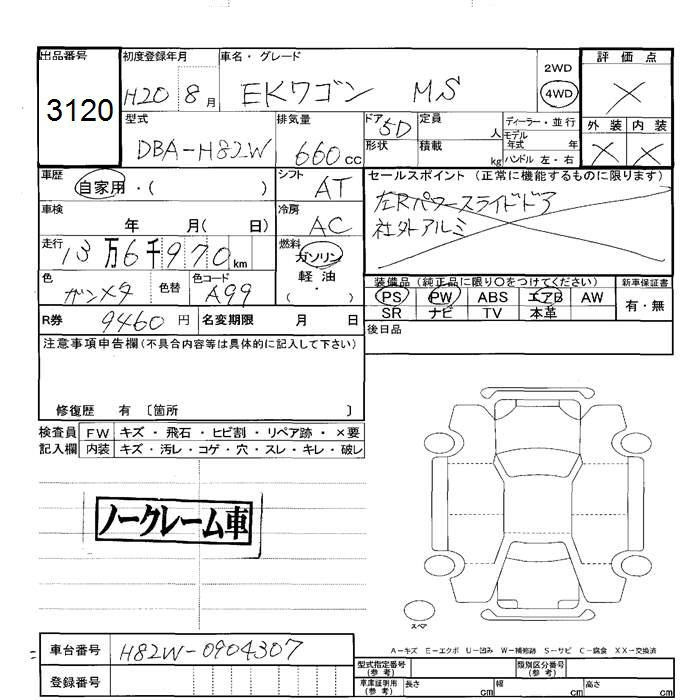 出品番号 初度登録年月 車名・グレード 2WD 評価点
3120 H20 8月 EKワゴン M.S 4WD X
型式 排気量 ドア 5D 定員 人 ディーラー・並行 外装 内装
DBA-H82W 660cc 形状 積載 kg モデル年式 年 X X
ハンドル 左・右
車歴 自家用・( ) シフト AT セールスポイント (正常に機能するものに限ります)
車検 年 月( 日) 冷房 AC 左Rパワースライドドア
社外アルミ
走行 13万6千970km 燃料 ガソリン 軽油 ( )
色 ガンメタ 色替 色コード A99 装備品 (純正品に限り○をつけてください) 新車保証書
PS PW ABS エアB AW 有・無
SR ナビ TV 本革
R券 9460円 名変期限 月 日 後日品
注意事項申告欄(不具合内容等は具体的に記入して下さい)
修復歴 有 〔箇所 〕
検査員 FW キズ・飛石・ヒビ割・リペア跡・×要
記入欄 内装 キズ・汚レ・コゲ・穴・スレ・キレ・破レ
ノークレーム車
スペア
A－キズ E－エクボ U－凹み W－補修跡 S－サビ C－腐食 XX－交換済
車台番号 H82W-0904307
登録番号
型式指定番号(参考) 類別区分番号(参考)
車庫証明用(参考) 長さ cm 幅 cm 高さ cm